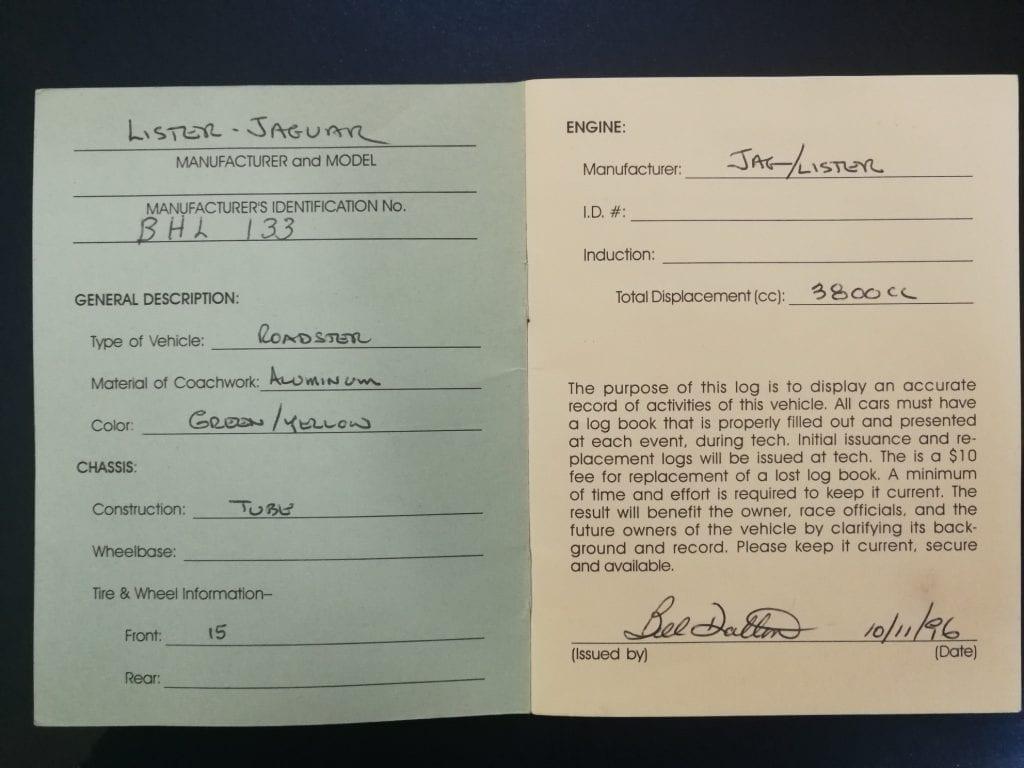 LISTER - JAGUAR
MANUFACTURER and MODEL
MANUFACTURER'S IDENTIFICATION No.
BHL 133
GENERAL DESCRIPTION:
Type of Vehicle: ROADSTER
Material of Coachwork: ALUMINUM
Color: GREEN/YELLOW
CHASSIS:
Construction: TUBE
Wheelbase:
Tire & Wheel Information–
Front: 15
Rear:
ENGINE:
Manufacturer: JAG/LISTER
I.D. #:
Induction:
Total Displacement (cc): 3800cc
The purpose of this log is to display an accurate
record of activities of this vehicle. All cars must have
a log book that is properly filled out and presented
at each event, during tech. Initial issuance and re-
placement logs will be issued at tech. The is a $10
fee for replacement of a lost log book. A minimum
of time and effort is required to keep it current. The
result will benefit the owner, race officials, and the
future owners of the vehicle by clarifying its back-
ground and record. Please keep it current, secure
and available.
10/11/96
(Issued by) (Date)